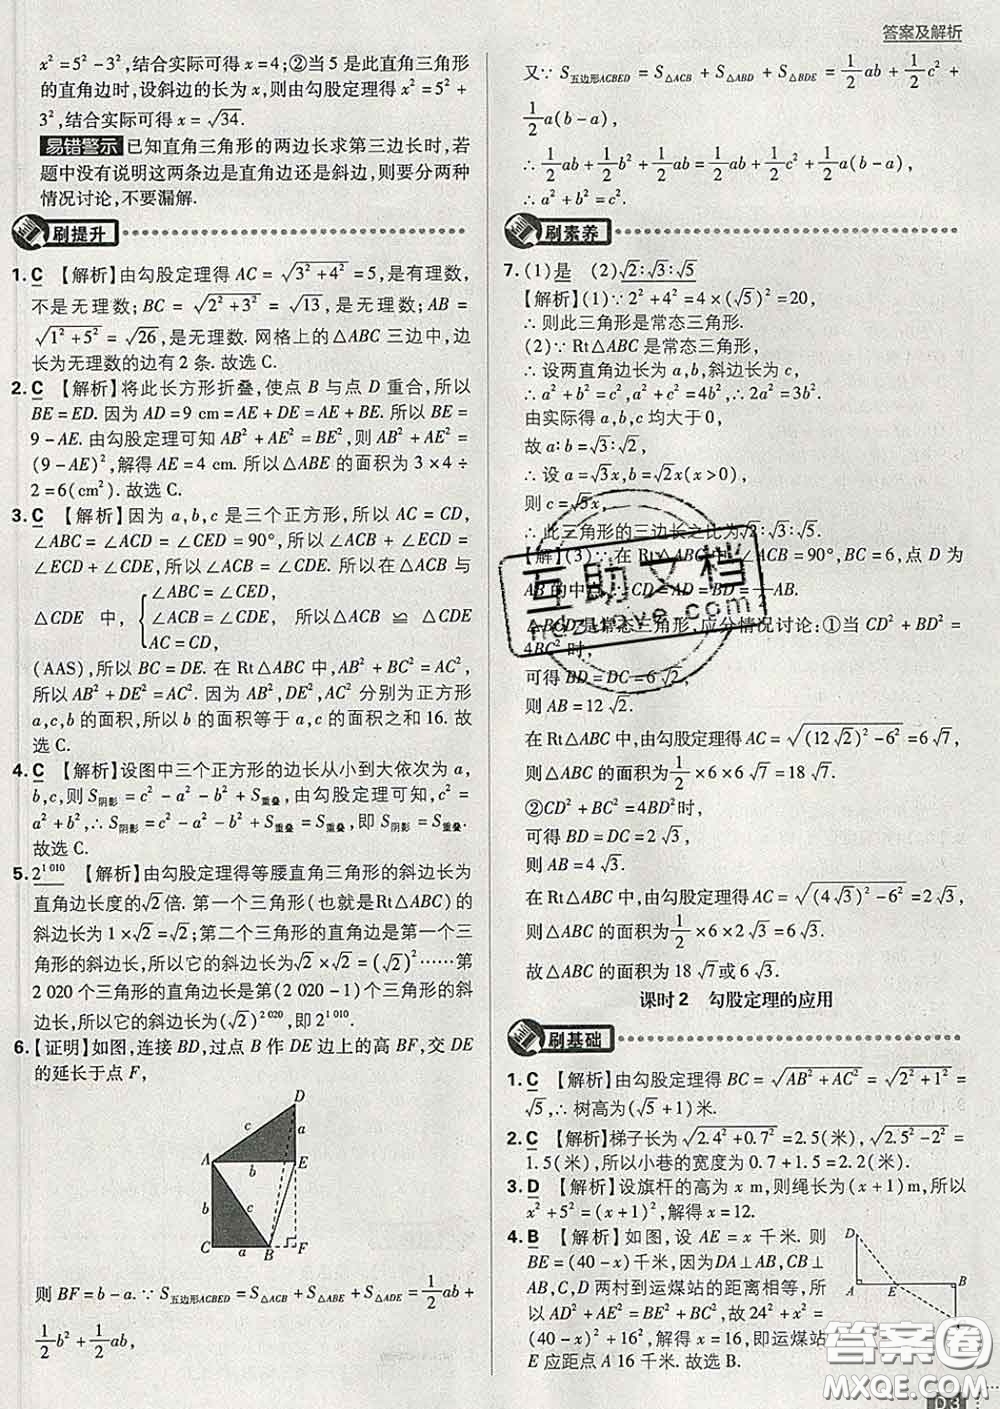 答案及解析
x²=5²-3²,结合实际可得 x=4;②当 5 是此直角三角形
的直角边时,设斜边的长为 x,则由勾股定理得 x²=5²+
3²,结合实际可得 x=√34.
易错警示 已知直角三角形的两边长求第三边长时,若
题中没有说明这两条边是直角边还是斜边,则要分两种
情况讨论,不要漏解.
刷提升
1. C 【解析】由勾股定理得 AC=√(3²+4²)=5,是有理数,
不是无理数;BC=√(2²+3²)=√13,是无理数;AB=
√(1²+5²)=√26,是无理数. 网格上的△ABC 三边中,边
长为无理数的边有 2 条. 故选 C.
2. C 【解析】将此长方形折叠,使点 B 与点 D 重合,所以
BE=ED. 因为 AD=9 cm=AE+DE=AE+BE. 所以 BE=
9-AE. 由勾股定理可知 AB²+AE²=BE²,则 AB²+AE²=
(9-AE)²,解得 AE=4 cm. 所以△ABE 的面积为 3×4÷
2=6(cm²). 故选 C.
3. C 【解析】因为 a,b,c 是三个正方形,所以 AC=CD,
∠ABC=∠ACD=∠CED=90°,所以∠ACB+∠ECD=
∠ECD+∠CDE,所以∠ACB=∠CDE. 所以在△ABC 与
△CDE 中,{∠ABC=∠CED, ∠ACB=∠CDE, AC=CD, 所以△ACB≌△CDE
(AAS),所以 BC=DE. 在 Rt△ABC 中,AB²+BC²=AC²,
所以 AB²+DE²=AC². 因为 AB²,DE²,AC² 分别为正方形
a,c,b 的面积,所以 b 的面积等于 a,c 的面积之和 16. 故
选 C.
4. C 【解析】设图中三个正方形的边长从小到大依次为 a,
b,c,则 S阴影=c²-a²-b²+S重叠,由勾股定理可知,c²=
a²+b²,∴S阴影=c²-a²-b²+S重叠=S重叠,即 S阴影=S重叠.
故选 C.
5. 2^1 010 【解析】由勾股定理得等腰直角三角形的斜边长为
直角边长度的√2倍. 第一个三角形(也就是Rt△ABC)的
斜边长为 1×√2=√2;第二个三角形的直角边是第一个三
角形的斜边长,所以它的斜边长为√2×√2=(√2)²……第
2 020 个三角形的直角边长是第(2 020-1)个三角形的斜
边长,所以它的斜边长为(√2)^2 020,即 2^1 010.
6.【证明】如图,连接 BD,过点 B 作 DE 边上的高 BF,交 DE
的延长于点 F,
D
c
a
A
b
E
b
c
C
a
B
F
则 BF=b-a. ∵S五边形ACBED=S△ACB+S△ABE+S△ADE=1/2 ab+
1/2 b²+1/2 ab,
又∵S五边形ACBED=S△ACB+S△ABD+S△BDE=1/2 ab+1/2 c²+
1/2 a(b-a),
∴1/2 ab+1/2 b²+1/2 ab=1/2 ab+1/2 c²+1/2 a(b-a),
∴a²+b²=c².
刷素养
7. (1)是 (2)√2:√3:√5
【解析】(1)∵2²+4²=4×(√5)²=20,
∴则此三角形是常态三角形.
(2)∵Rt△ABC 是常态三角形,
∴设两直角边长为 a,b,斜边长为 c,
∴a²+b²=c²,a²+c²=4b²,∴2a²=3b².
由实际得 a,b,c 均大于 0,
故 a:b=√3:√2,
∴设 a=√3x,b=√2x(x>0),
则 c=√5x,
∴此三角形的三边长之比为√2:√3:√5.
【解】(3)∵在 Rt△ABC 中,∠ACB=90°,BC=6,点 D 为
AB 的中点,∴CD=AD=BD=1/2 AB.
△BCD 是常态三角形,应分情况讨论:①当 CD²+BD²=
4BC² 时,
可得 BD=DC=6√2,
则 AB=12√2.
在 Rt△ABC 中,由勾股定理得 AC=√((12√2)²-6²)=6√7,
则△ABC 的面积为1/2×6×6√7=18√7.
②CD²+BC²=4BD²时,
可得 BD=DC=2√3,
则 AB=4√3.
在 Rt△ABC 中,由勾股定理得 AC=√((4√3)²-6²)=2√3,
则△ABC 的面积为1/2×6×2√3=6√3.
故△ABC 的面积为 18√7或 6√3.
课时 2 勾股定理的应用
刷基础
1. C 【解析】由勾股定理得 BC=√(AB²+AC²)=√(2²+1²)=
√5,∴树高为(√5+1)米.
2. C 【解析】梯子长为√(2.4²+0.7²)=2.5(米),√(2.5²-2²)=
1.5(米),所以小巷的宽度为 0.7+1.5=2.2(米). 故选 C.
3. D 【解析】设旗杆的高为 x m,则绳长为(x+1)m,所以
x²+5²=(x+1)²,解得 x=12.
4. B 【解析】如图,设 AE=x 千米. 则
BE=(40-x)千米,因为DA⊥AB,CB⊥
AB,C,D 两村到运煤站的距离相等,所
以 AD²+AE²=BE²+BC²,故 24²+x²=
(40-x)²+16²,解得 x=16,即运煤站
E 应距点 A 16 千米. 故选 B.
D
A
E
B
互助文档
hdzuoye.com
答案圈
MXQE.COM
D3